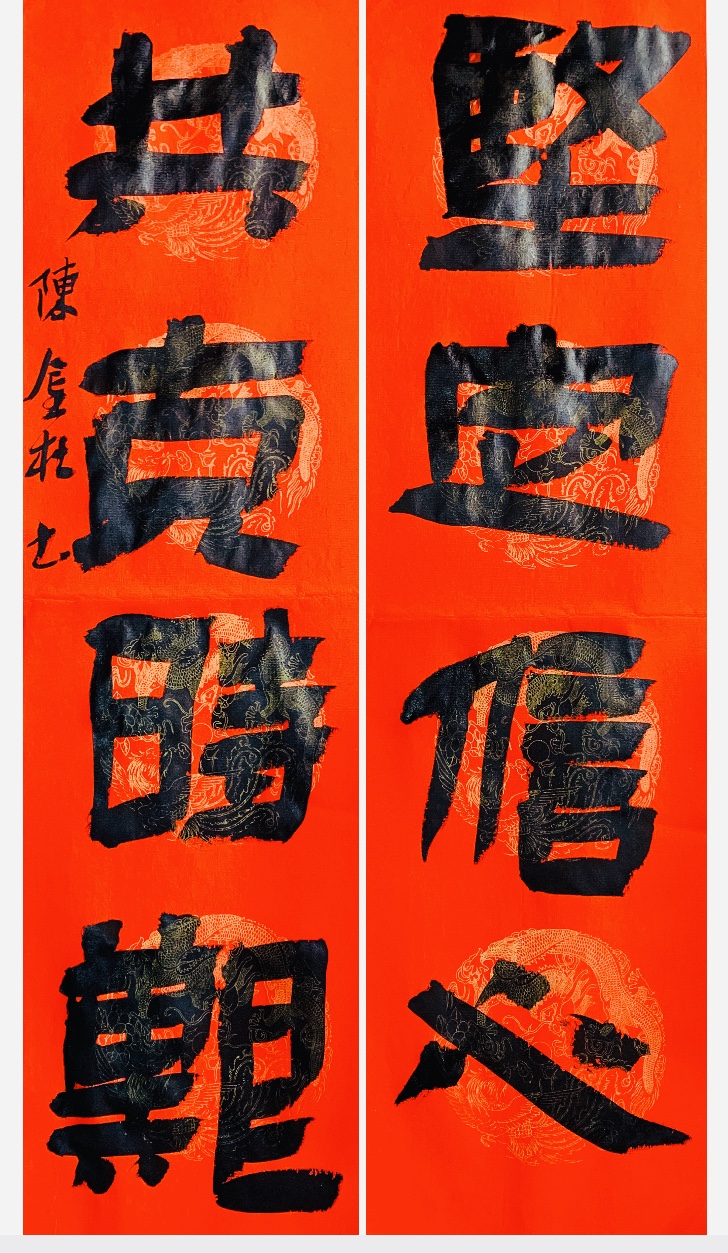 堅定信心
共克時艱
陳金